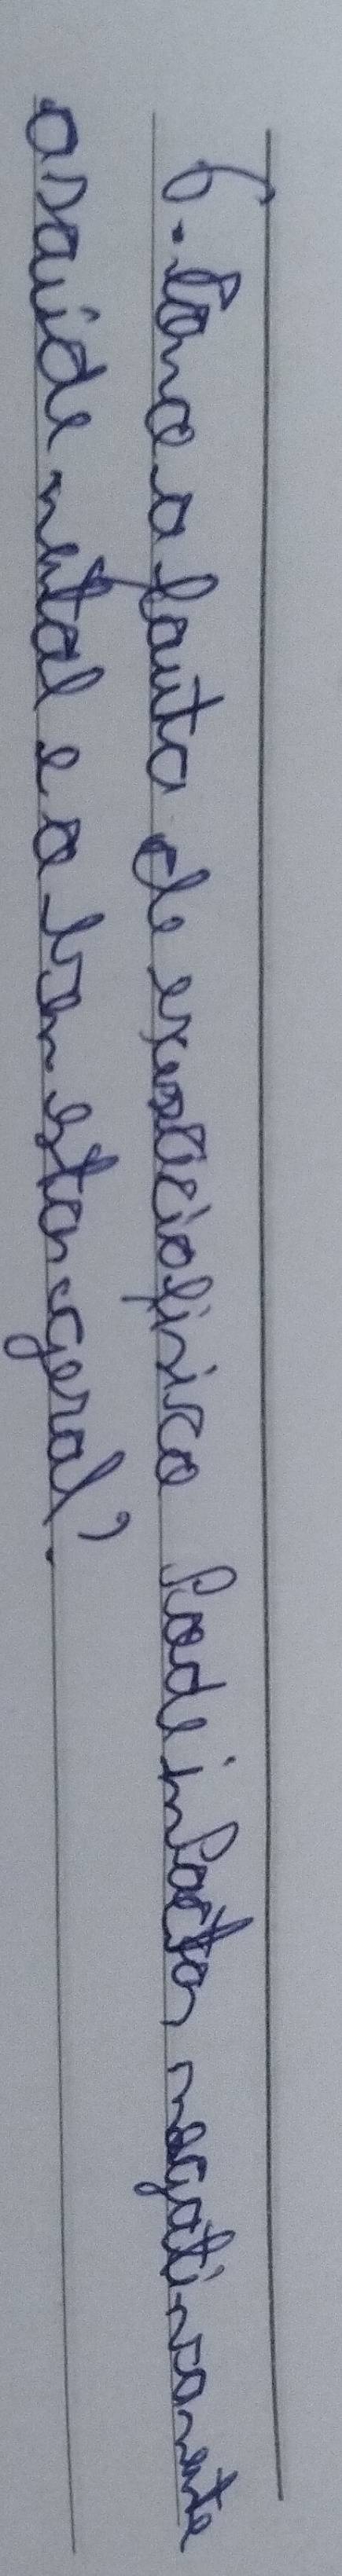 6- Como a fauta de exercício físico Pode inPactar negativamente
a saúde mental e o bem estar geral?